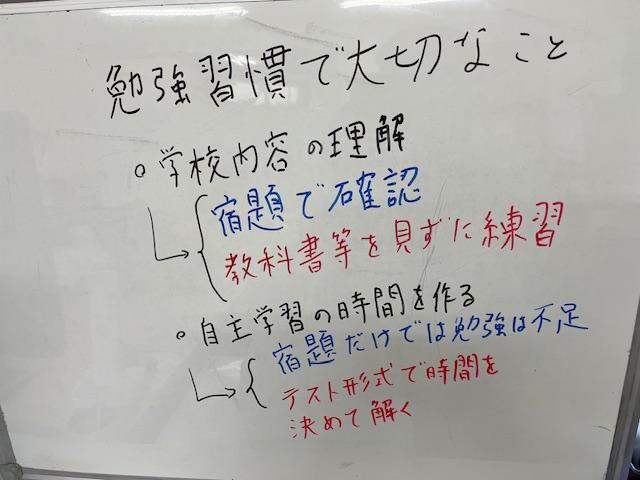 勉強習慣で大切なこと
○学校内容の理解
宿題で確認
教科書等を見ずに練習
○自主学習の時間を作る
宿題だけでは勉強は不足
テスト形式で時間を
決めて解く